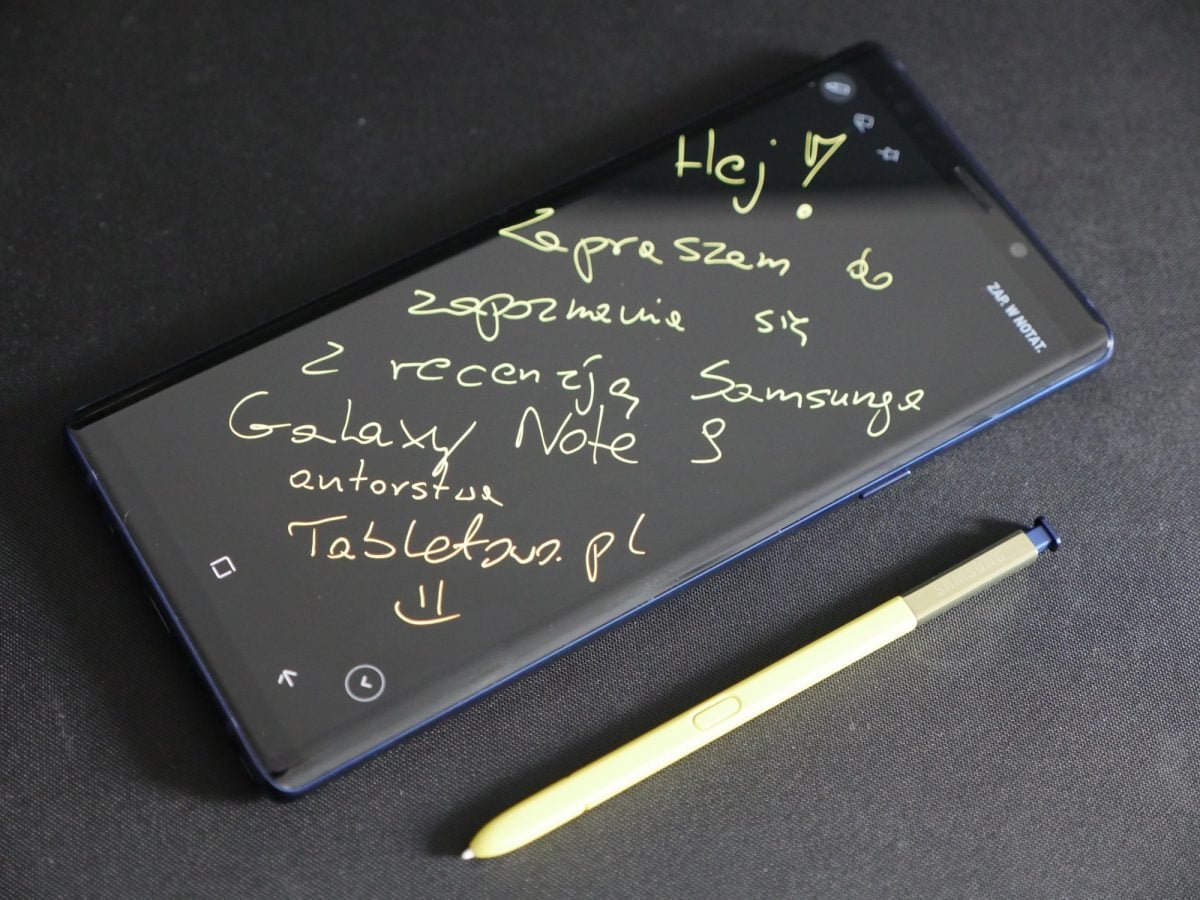 Hej!
Zapraszam do
zapoznania się
z recenzją Samsunga
Galaxy Note 9
autorstwa
Tabletowo.pl
=)
ZAP. W NOTAT.
SAMSUNG